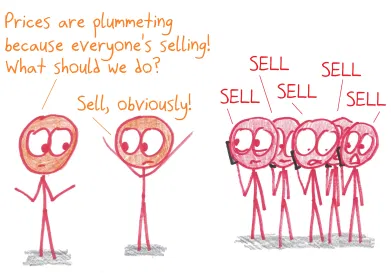 Prices are plummeting
because everyone's selling!
What should we do?
Sell, obviously!
SELL
SELL
SELL
SELL
SELL